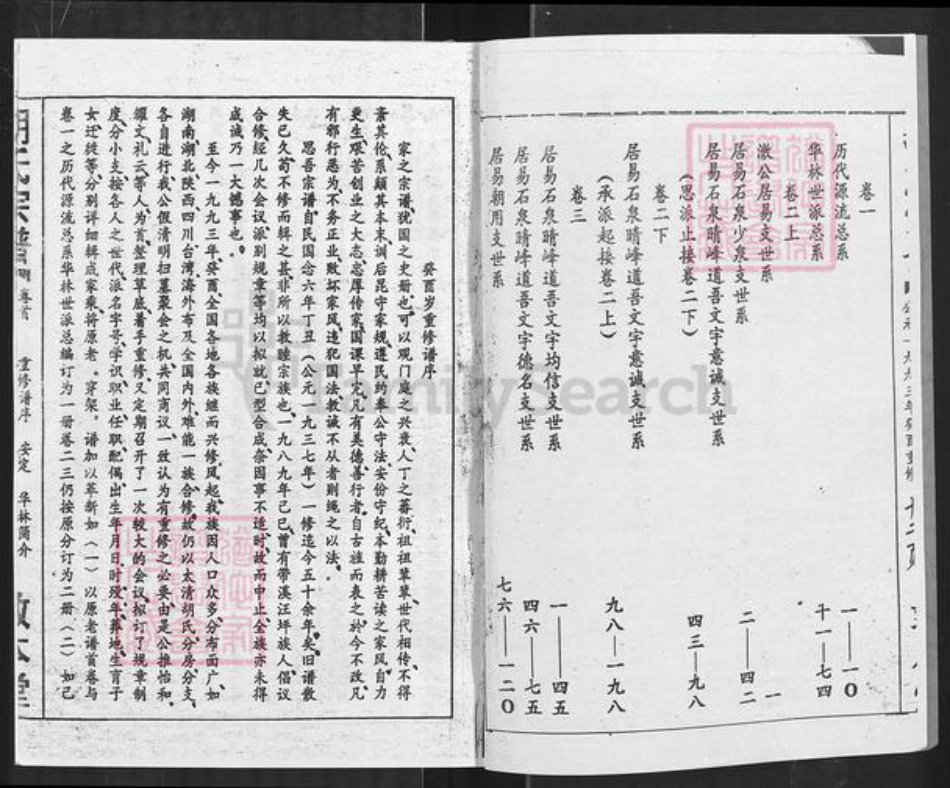 卷一
历代源流总系 一——一〇
华林世派总系 十一——七四
卷二上
澂公居易支世系 一
居易石泉少泉支世系 二——四二
居易石泉晴峰道吾文宇意诚支世系 四三——九八
(思派上接卷二下)
卷二下
居易石泉晴峰道吾文宇意诚支世系 九八——一九八
(承派起接卷二上)
卷三
居易石泉晴峰道吾文宇均信支世系 一——四五
居易石泉晴峰道吾文宇德名支世系 四六——七五
居易朝用支世系 七六——一二〇
癸酉岁重修谱序
家之宗谱犹国之史册也,可以观门庭之兴衰,人丁之蕃衍,祖祖辈辈,世代相传,不得
紊其伦系,颠其本末,训后昆守家规,遵民约,奉公守法,安份守纪,本勤耕苦读之家风,自力
更生,艰苦创业之大志,忠厚传家,国课早完,凡有美德善行者,自古旌而表之,於今不改,凡
有邪行悉为,不务正业,败坏家风,违犯国法,教诫不从者,则绳之以法。
思吾宗谱,自民国念六年丁丑(公元一九三七年)一修迄今五十余年矣,旧谱散
失已久,苟不修而辑之,甚非所以敦睦宗族也,一九八九年己巳,曾有带溪汪坪族人倡议
合修,经几次会议,派别规章等均以拟就,已型合成,奈因事不适时,故而中止,全族亦未得
成,诚乃一大憾事也。
至今一九九三年,癸酉全国各地各族继而兴修风起,我族因人口众多,分布面广,如
湖南,湖北,陕西,四川,台湾,海外布及全国内外,难能一族合修,故仍以太清胡氏分房分支,
各自进行,我公假清明扫墓聚会之机,共同商议,一致认为有重修之必要,由是公推怡和,
耀文,礼云等人为首,整理草底,着手重修,又定期召开了一次较大的会议,拟订了规章制
度,分小支按各人之世代,派名字号,学识职业任职,配偶出生年月日时,殁年,葬地,生育子
女,迁徙等,分别详细辑成家乘,将原老。穿架 谱加以革新如(一)以原老谱首卷与
卷一之历代源流总系华林世派总编订为一册,卷二三仍按原分订为二册(二)如己
胡氏宗谱 卷首 重修谱序 安定 华林简介